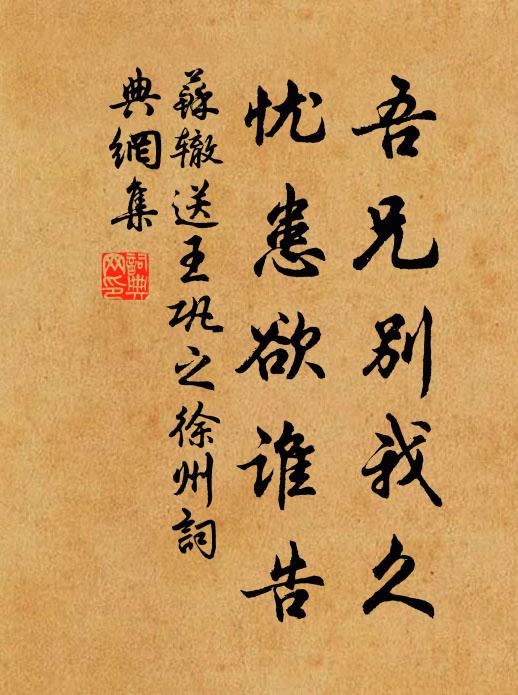 吾兄别我久
忧患欲谁告
蘇辙送王巩之徐州詞
典網集
詞典
网印